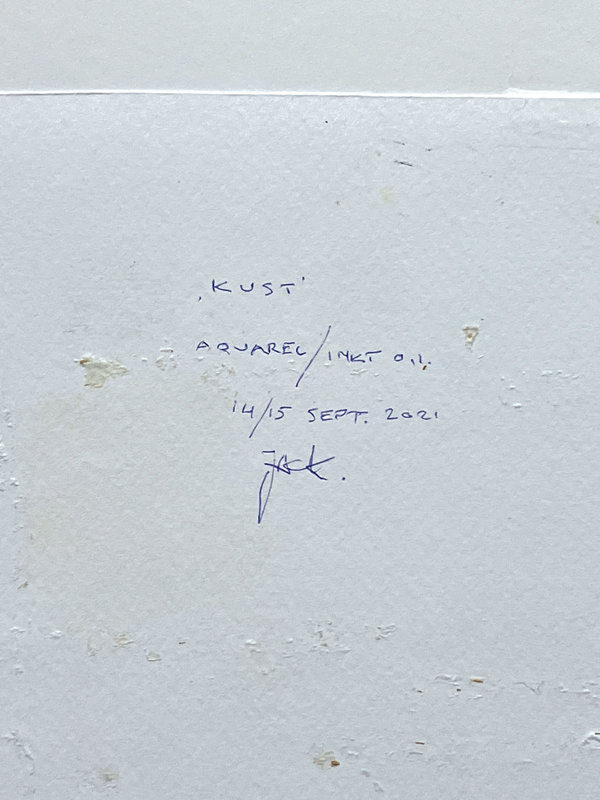 ,KUST'
AQUAREL/INKT O.I.
14/15 SEPT. 2021
Jack.